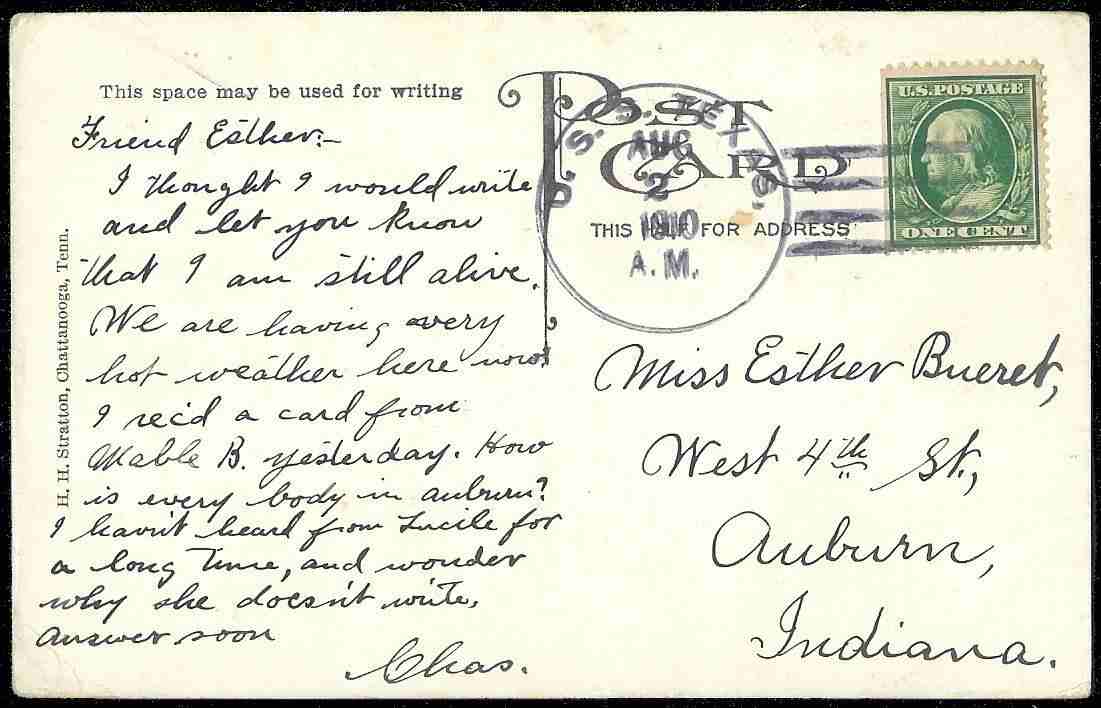 This space may be used for writing
Friend Esther:-
I thought I would write
and let you know
that I am still alive.
We are having very
hot weather here now.
I rec'd a card from
Mable B. yesterday. How
is every body in auburn?
I havn't heard from Lucile for
a long Time, and wonder
why she doesn't write.
answer soon
Chas.
H. H. Stratton, Chattanooga, Tenn.
POST CARD
THIS HALF FOR ADDRESS
U. S. S. TEXAS.
AUG
2
1910
A.M.
U.S. POSTAGE
ONE CENT
Miss Esther Bueret,
West 4th St.,
Auburn,
Indiana.